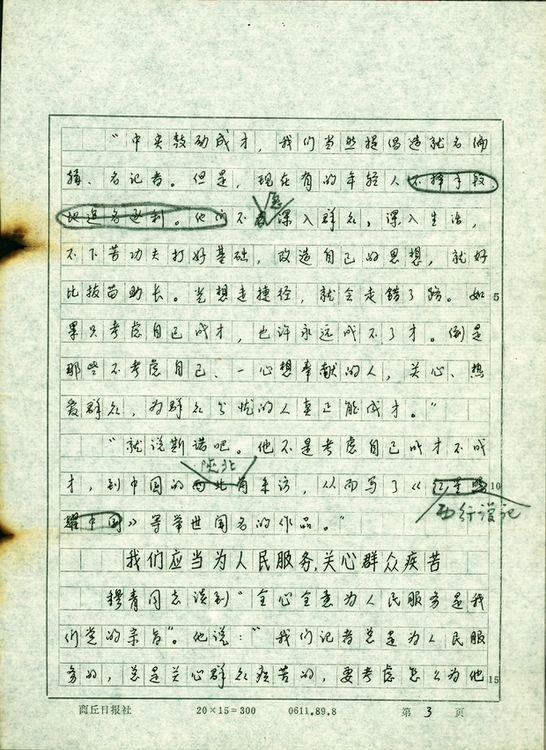 “中央鼓励成才，我们当然提倡造就名编
辑、名记者。但是，现在有的年轻人不择手段
地追名逐利。他们不愿深入群众，深入生活，
不下苦功夫打好基础，改造自己的思想，就好
比拔苗助长。光想走捷径，就会走错了路。如 5
果只考虑自己成才，也许永远成不了才。倒是
那些不考虑自己、一心想奉献的人，关心、热
爱群众，为群众分忧的人真正能成才。”
“就说斯诺吧。他不是考虑自己成才不成
陕北
才，到中国的西北角采访，从而写了《红星照 10
耀中国》等举世闻名的作品。”
西行漫记
我们应当为人民服务，关心群众疾苦
穆青同志谈到“全心全意为人民服务是我
们党的宗旨”。他说：“我们记者总是为人民服
务的，总是关心群众疾苦的，要考虑怎么为他 15
商丘日报社 20×15=300 0611.89.8 第 3 页